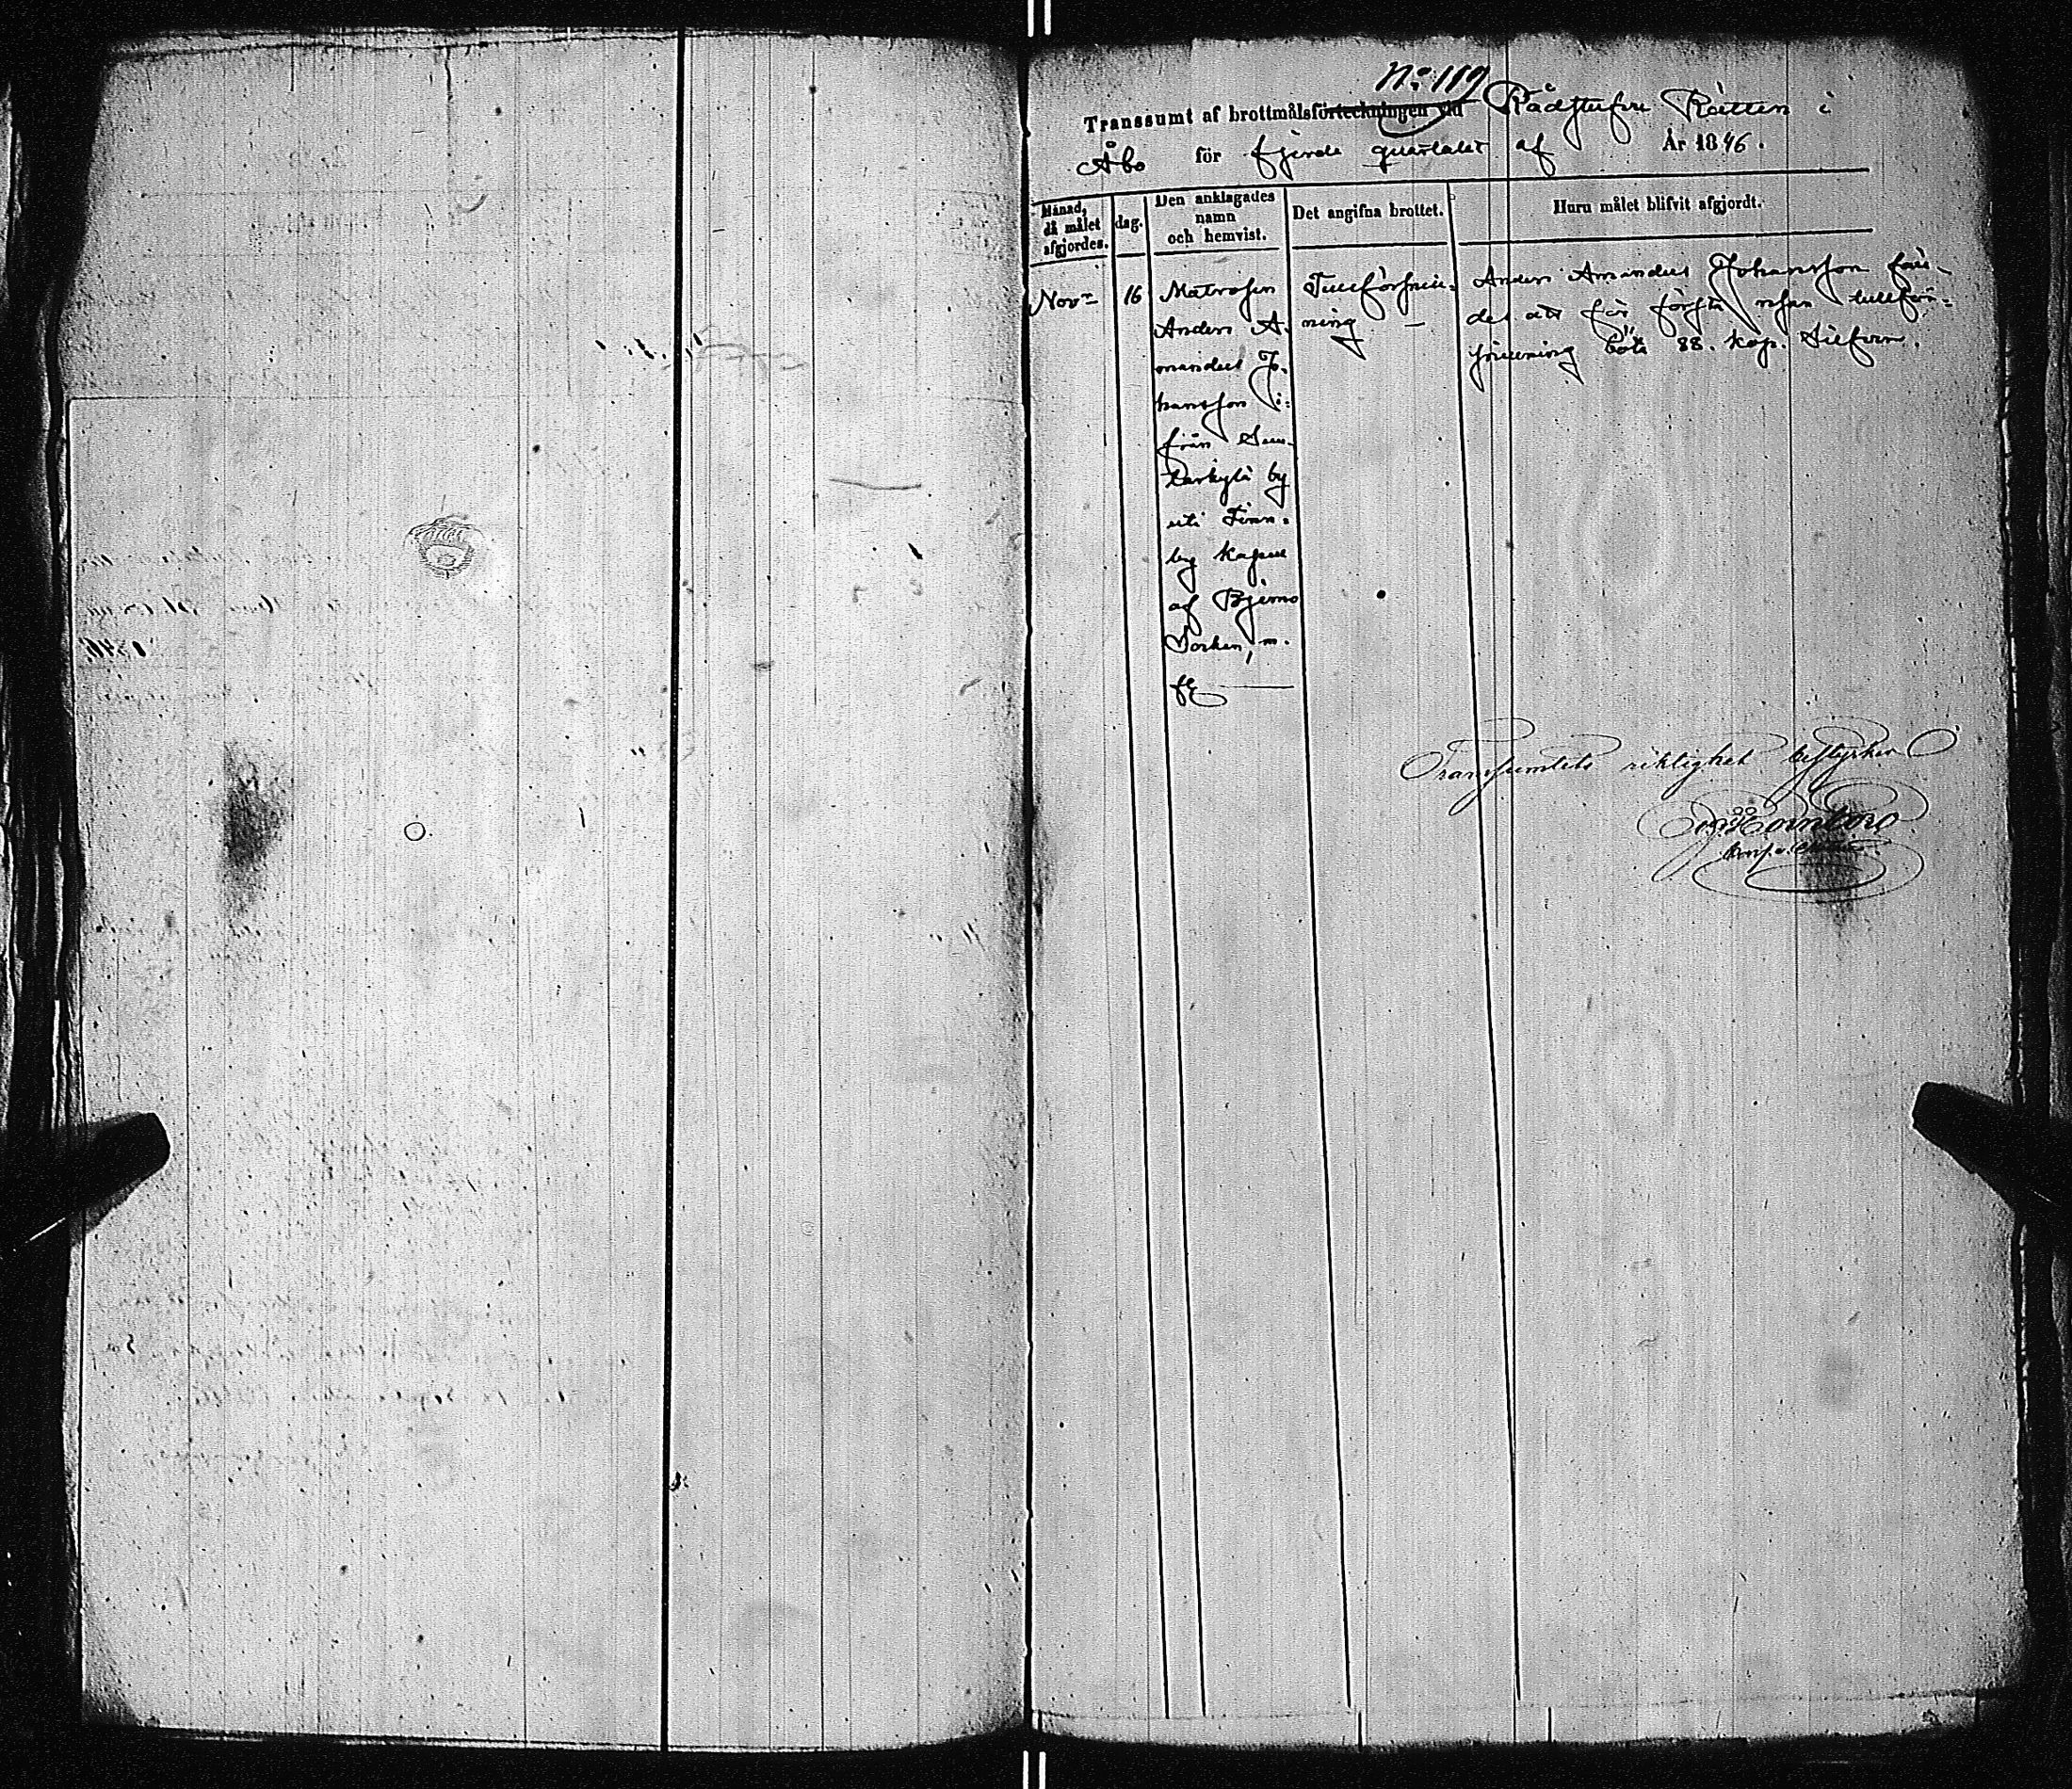 No 117
Transsumt af brottmålsförteckningen vid Rådstufvu Rätten i
Åbo för fjerde quartalet af År 1846.
Månad, då målet afgjordes.
dag.
Den anklagades namn och hemvist.
Det angifna brottet.
Huru målet blifvit afgjordt.
Novr 16
Matrosen
Anders A-
mandus Jo-
hansson i-
från
by
uti Finn-
by kapell
af Bjerno
Socken, m.
fl
Tullförsnill-
ning
Anders Amandus Johansson fäll-
des att för första resan tullför-
snillning böta 88. kop. Silfver.
Transsumtets riktighet bestyrker